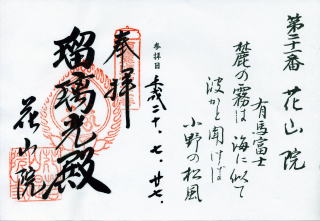 第二十一番 花山院
有馬富士
麓の霧は海に似て
波かと聞けば
小野の松風
参拝日 平成二十、七、廿七、
奉拝
瑠璃光殿
花山院